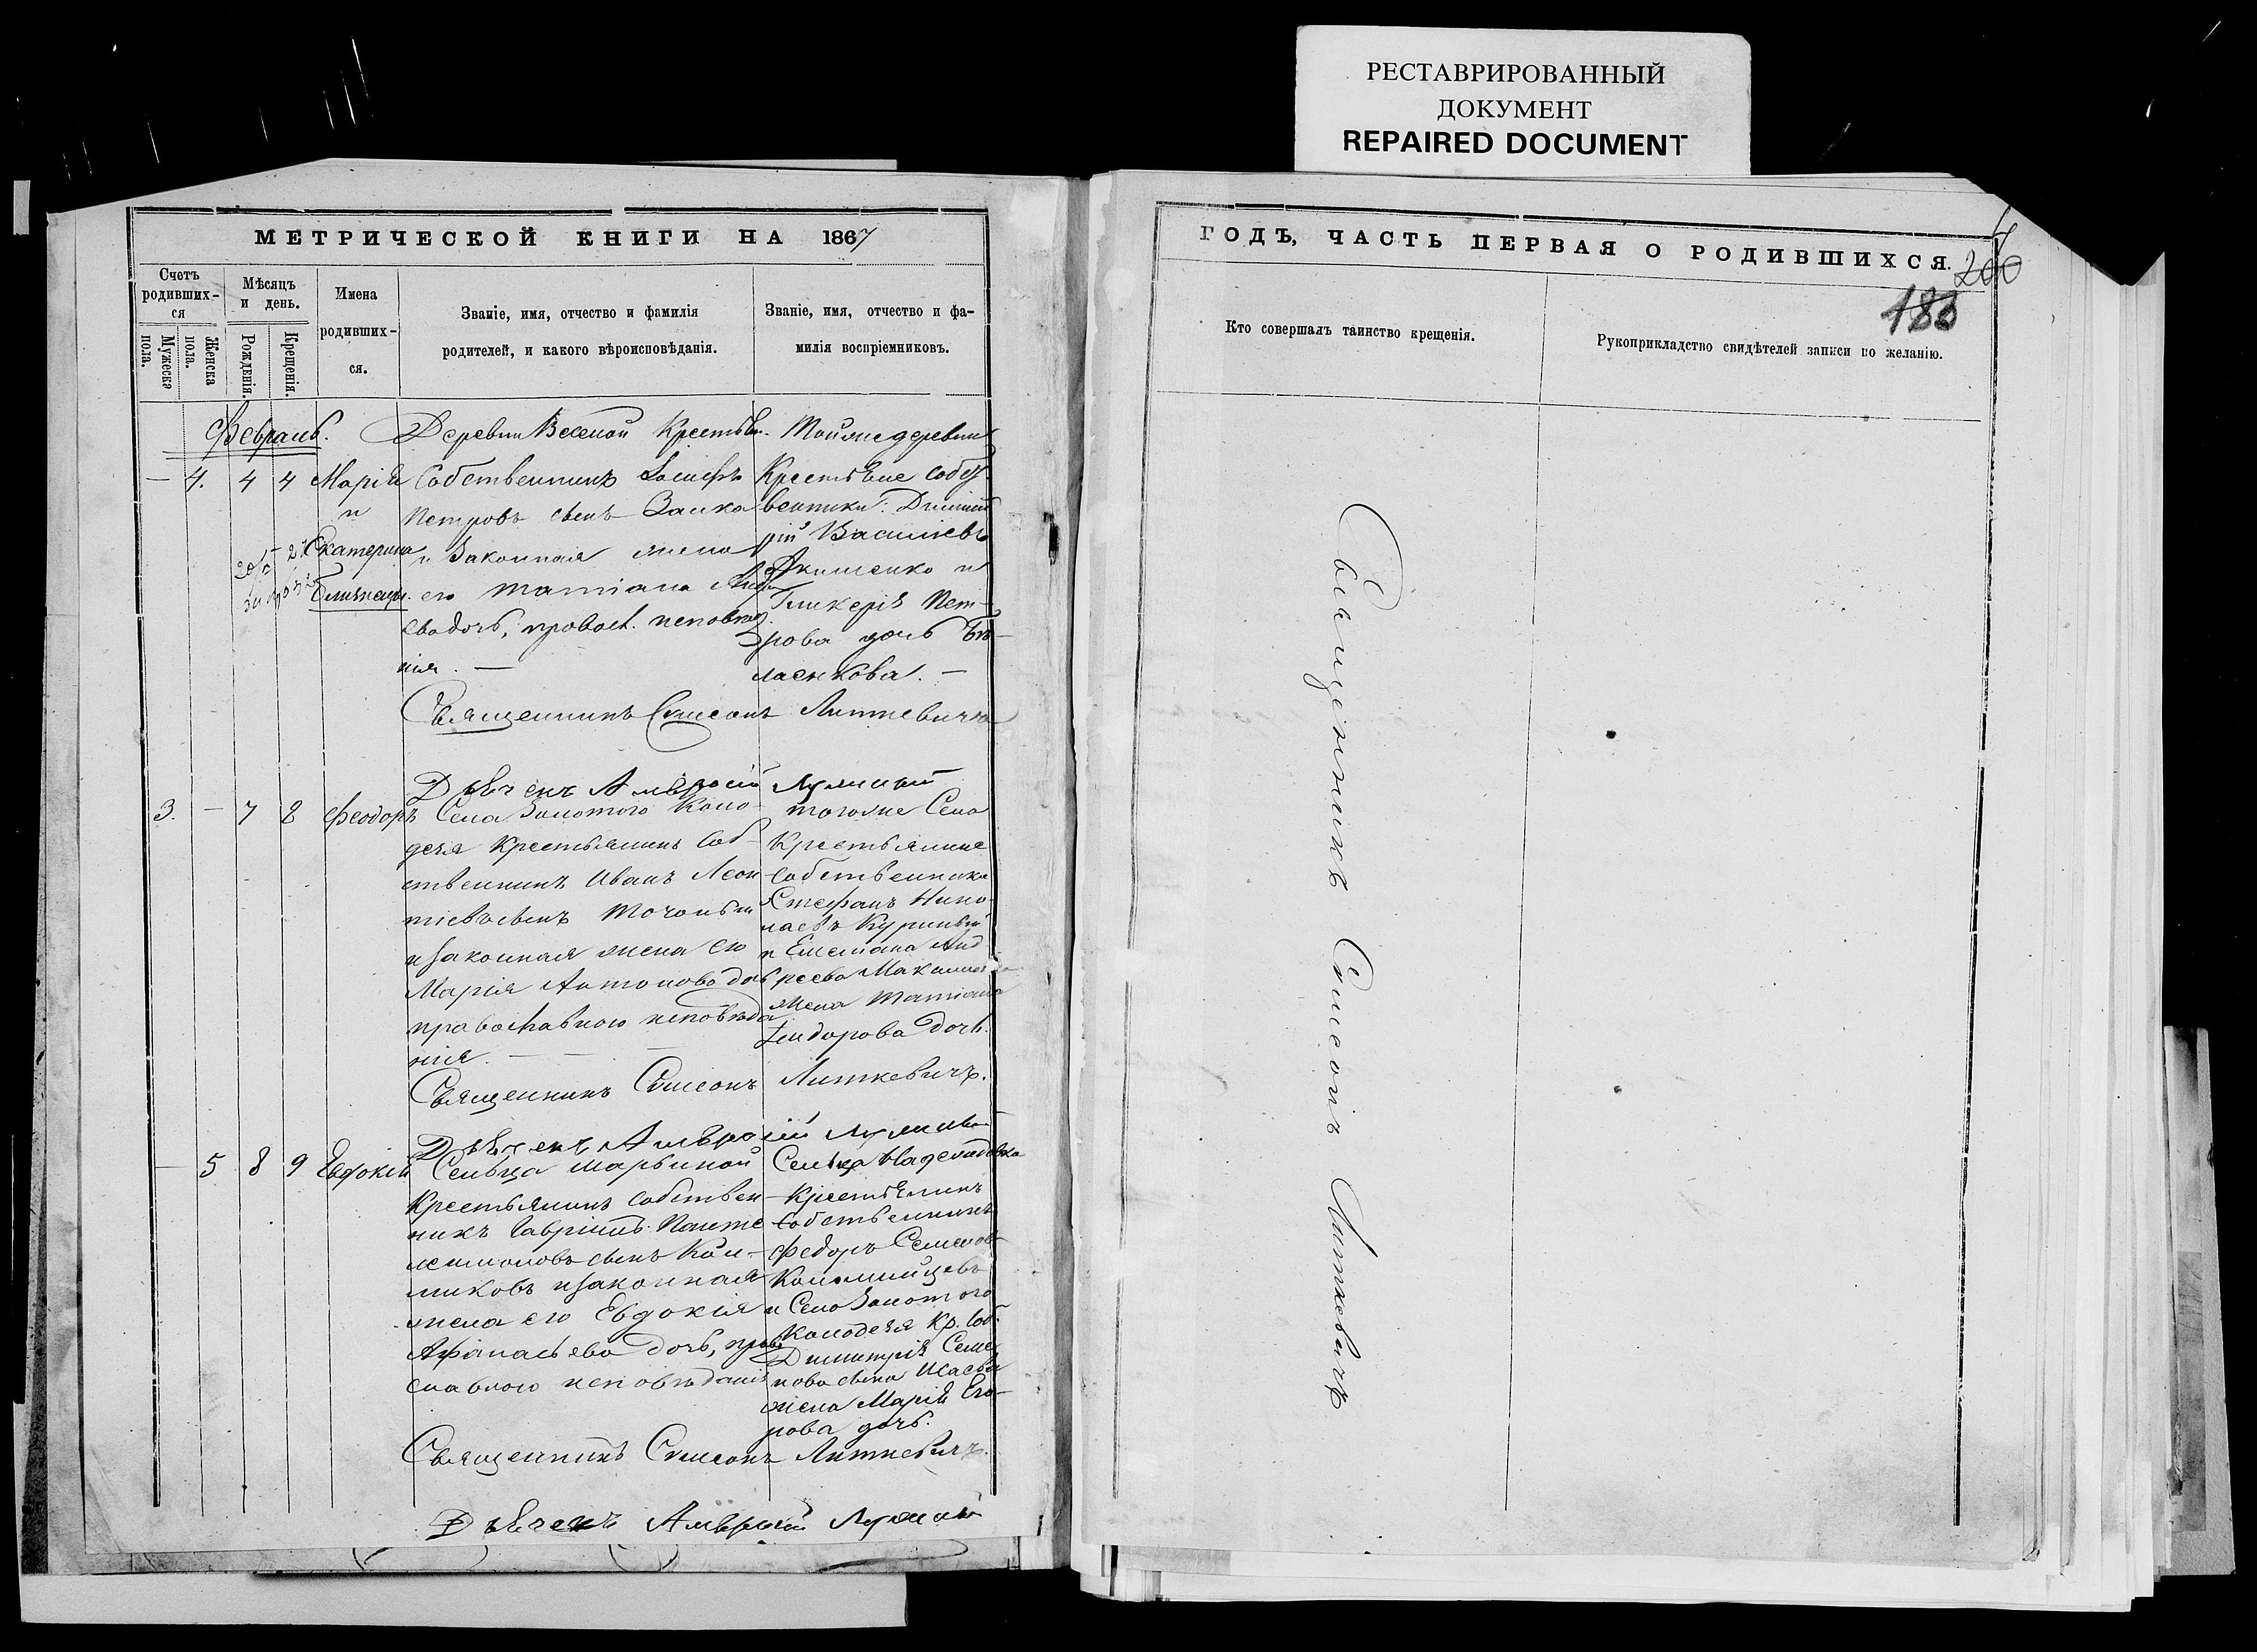 РЕСТАВРИРОВАННЫЙ
ДОКУМЕНТ
REPAIRED DOCUMENT
МЕТРИЧЕСКОЙ КНИГИ НА 1867
Счетъ родивших-ся
Мужеска пола.
Женска пола.
Мѣсяцъ и день.
Рожденія.
Крещенія.
Имена родивших-ся.
Званіе, имя, отчество и фамилія
родителей, и какого вѣроисповѣданія.
Званіе, имя, отчество и фа-
милія воспріемниковъ.
Февраль.
— 4. 4 4 Марія
и
Екатерина
близнецы.
Деревни Веселой Крестьян.
Собственникъ Іосифъ
Петровъ сынъ Заика
и Законная жена
его Татіана
ева дочь, правосл. исповѣд
нія. —
Тойже деревни
Крестьяне собст
венники: Димит
рій Василіевъ
Якименко и
Гликерія Пет-
рова дочь Бѣ-
ласнкова. —
Священникъ Симеонъ Литкевичъ
Дьячекъ Амвросій
3. — 7 8 Феодоръ
Села Золотого Коло-
дезя Крестьянинъ Соб-
ственникъ Иванъ Леон
тіевъ сынъ
и законная жена его
Марія Антонова дочь
православного исповѣда
нія. — — —
тогоже Села
Крестьяне
собственники
Стефанъ Нико
лаевъ Куриный
и Емеліана Анд
реева
жена Татіана
Феодорова дочь.
Священникъ Симеонъ Литкевичъ.
Дьячекъ Амвросій
— 5 8 9 Евдокія
Сельца Марьиной
Крестьянинъ собствен-
никъ Гавріилъ Панте
леимоновъ сынъ Кол-
миковъ и законная
жена его Евдокія
Афанасьева дочь, право
славного исповѣданія
Сельца Надеждовка
Крестьянинъ
Собственникъ
Федоръ Семенов
Коломийцевъ
и Села Золотого
Колодезя Кр. Соб.
Димитрія Семе
нова сына Исаева
жена Марія Его-
рова дочь.
Священникъ Симеонъ Литкевичъ.
Дьячекъ Амвросій
ГОДЪ, ЧАСТЬ ПЕРВАЯ О РОДИВШИХСЯ.
200
188
Кто совершалъ таинство крещенія.
Рукоприкладство свидѣтелей записи по желанію.
Священникъ Симеонъ Литкевичъ